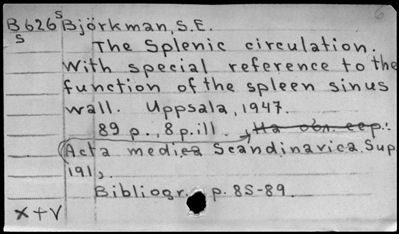 6
B626 s Björkman, S.E.
s
The Splenic circulation.
With special reference to the
function of the spleen sinus
wall. Uppsala, 1947.
89 p., 8 p. ill., На обл. сер.:
(Acta medica Scandinavica. Sup
191),
Bibliogr. p. 85-89.
x+v